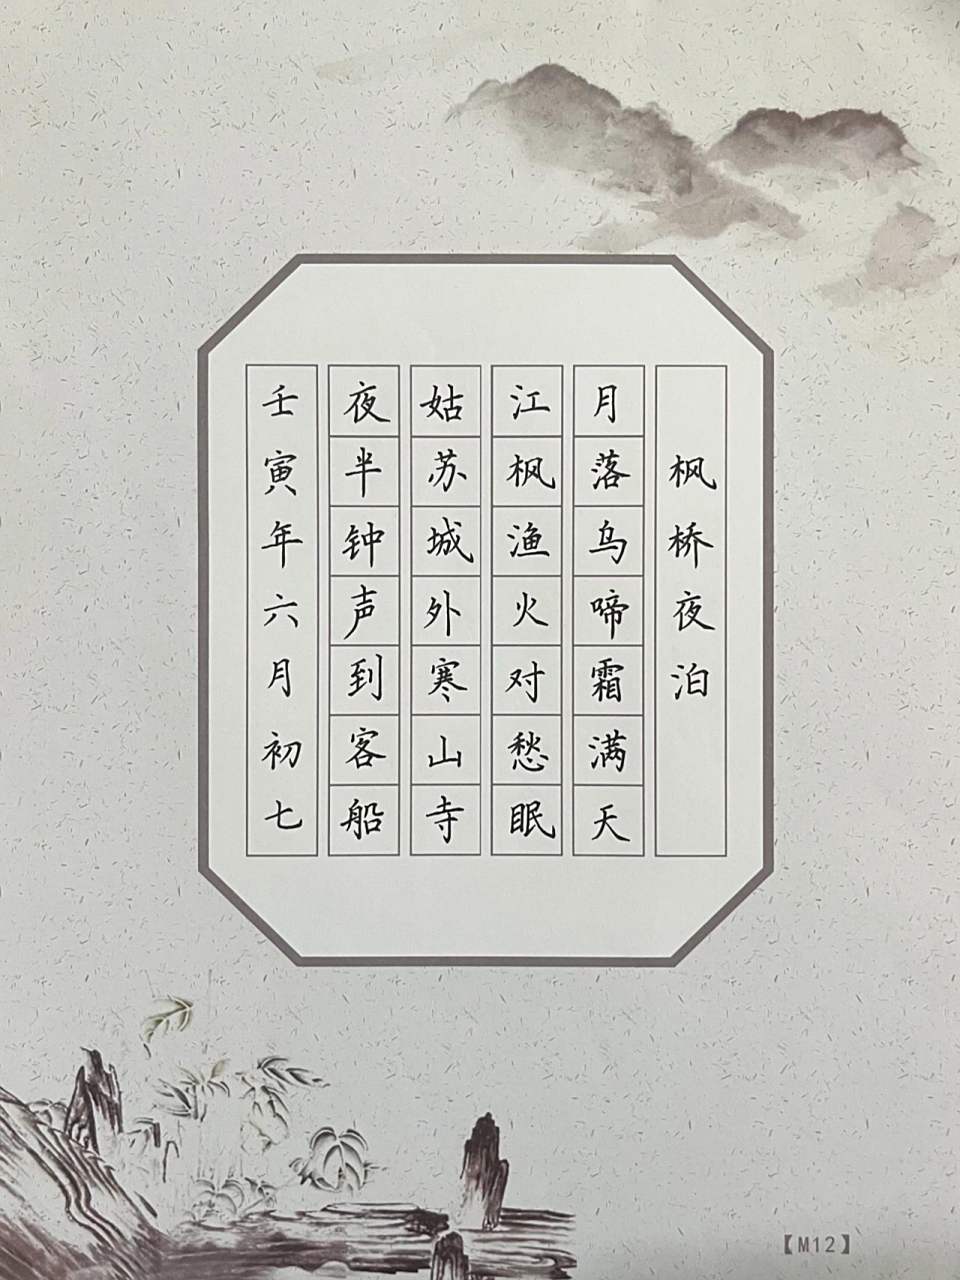 枫桥夜泊
月落乌啼霜满天
江枫渔火对愁眠
姑苏城外寒山寺
夜半钟声到客船
壬寅年六月初七
【M12】